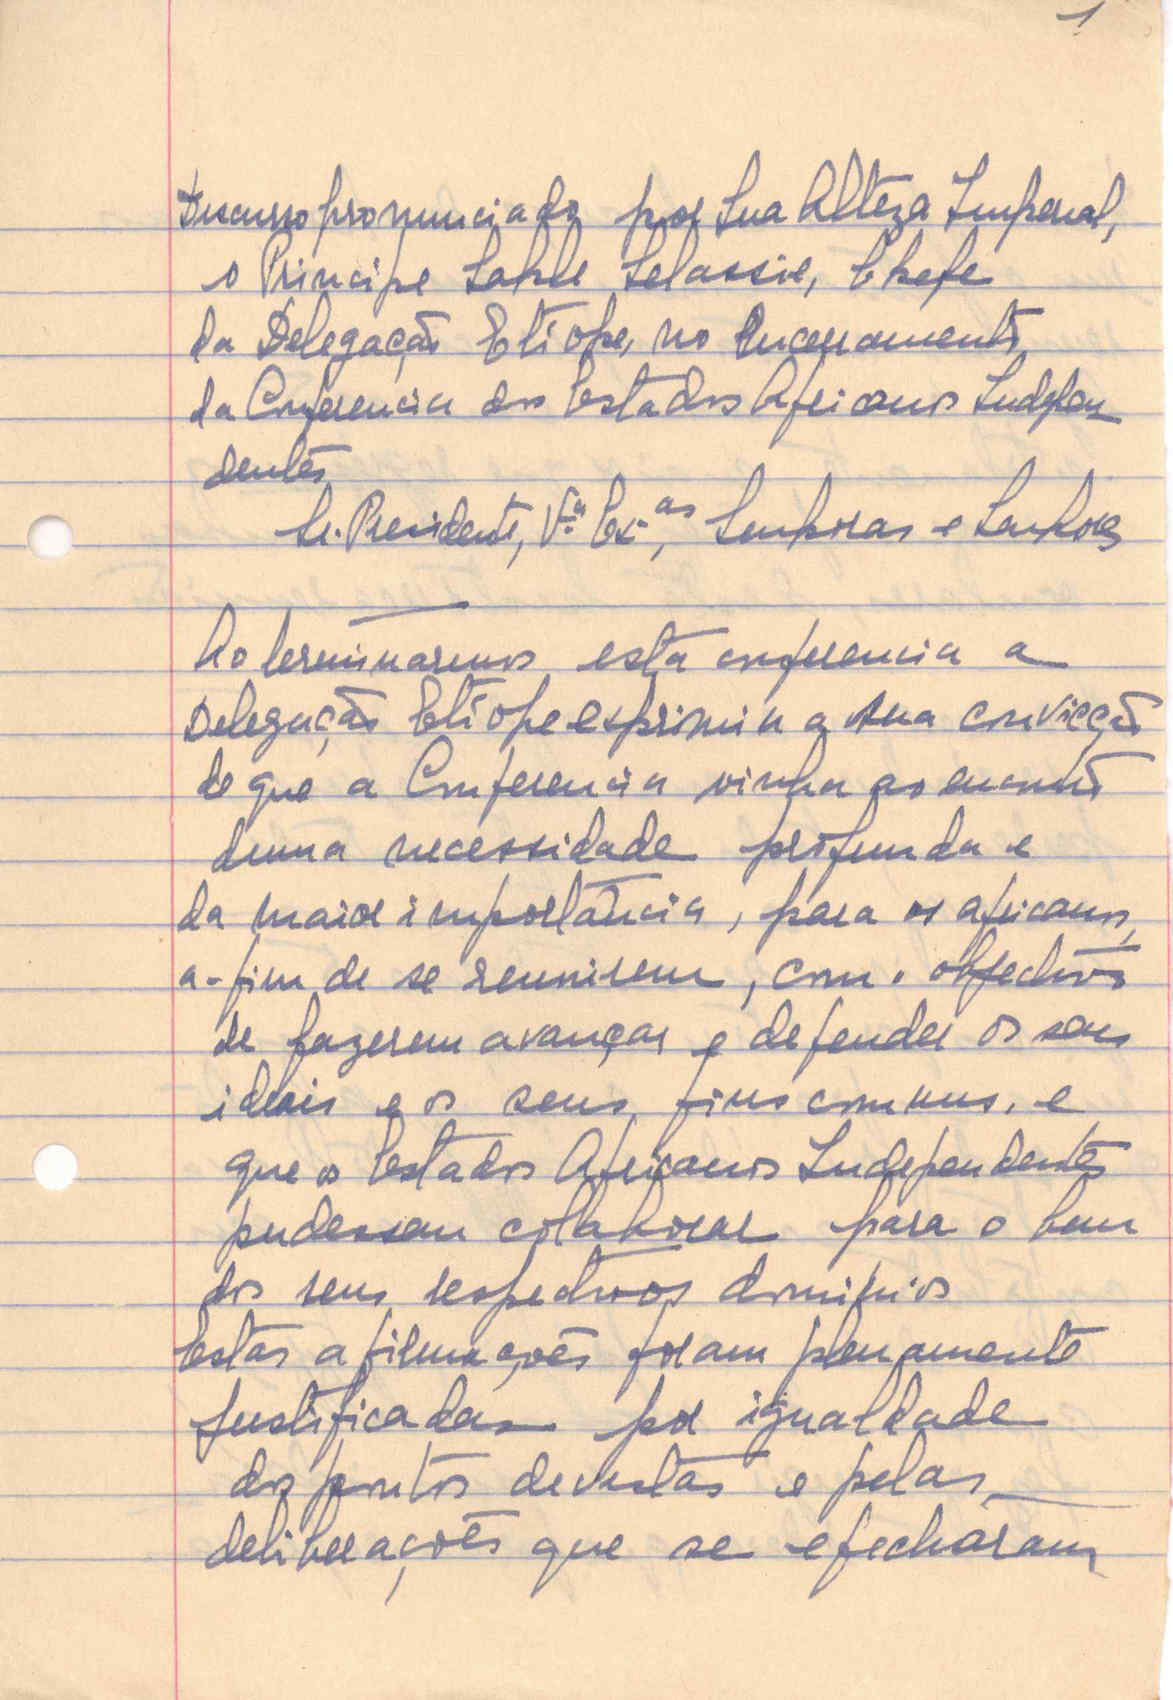 1
Discurso pronunciado por Sua Alteza Imperial,
o Principe Sahle Selassie, Chefe
da Delegação Etiope, no Encerramento
da Conferencia dos Estados Africanos Indepen
dentes
Sr. Presidente, V.as Ex.as, Senhoras e Senhores
Ao terminaremos esta conferencia a
Delegação Etíope esprimiu a sua convicção
de que a Conferencia vinha ao encontro
duma necessidade profunda e
da maior importância, para os africanos,
a-fim de se reunirem, com o objectivo
de fazerem avançar e defender os seus
ideais e os seus fins comuns, e
que os Estados Africanos Independentes
pudessem colaborar para o bem
dos seus respectivos dominios
Estas afirmações foram plenamente
justificadas por igualdade
dos pontos de vistas e pelas
deliberações que se efecharam